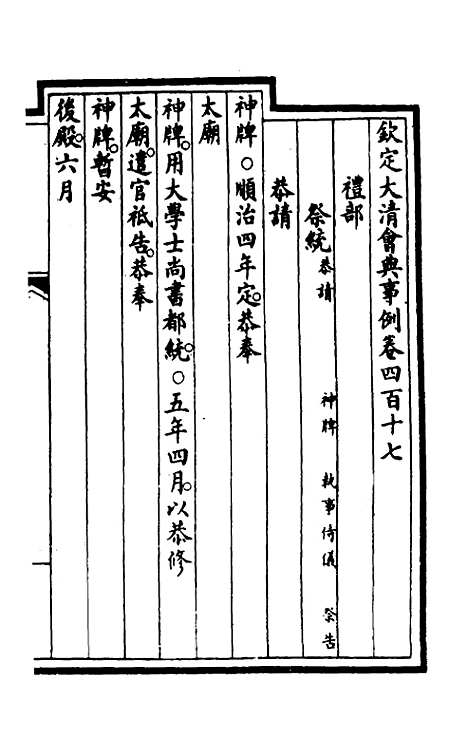 欽定大清會典事例卷四百十七
禮部
祭統 恭請 神牌 執事侍儀 祭告
恭請
神牌○順治四年定。恭奉
太廟
神牌。用大學士尚書都統。○五年四月。以恭修
太廟。遣官祗告。恭奉
神牌。暫安
後殿。六月